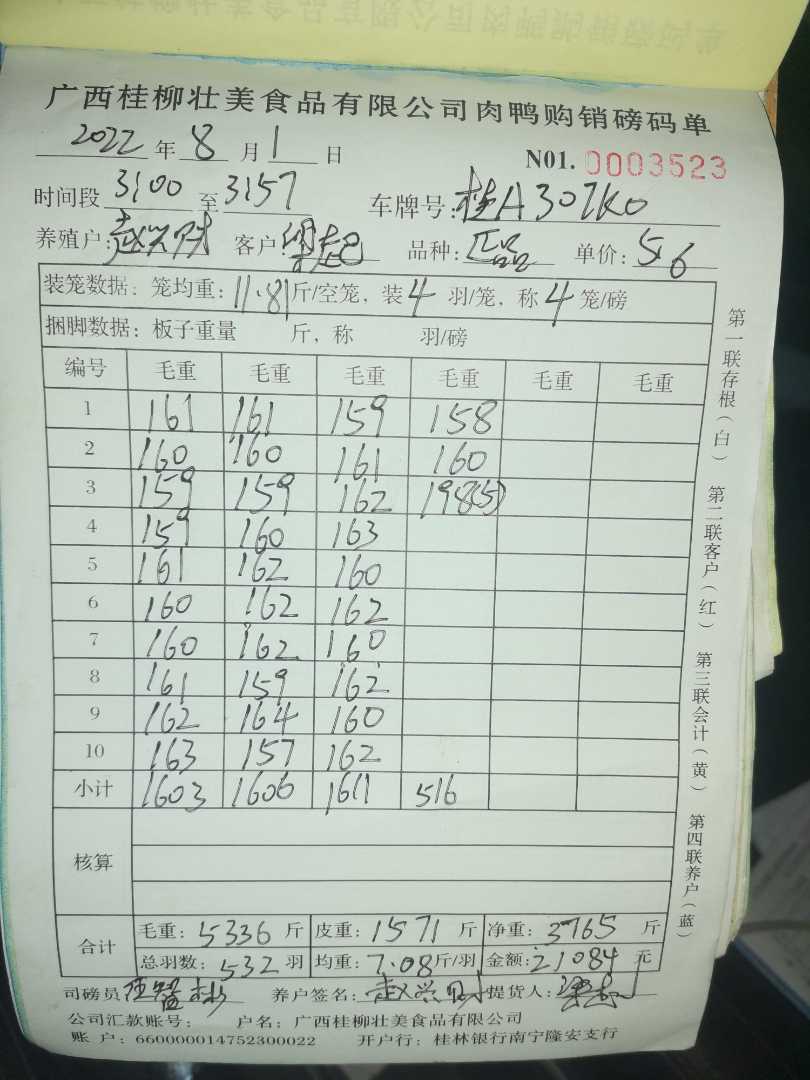 广西桂柳壮美食品有限公司肉鸭购销磅码单
2022年8月1日 N01. 0003523
时间段3:00至3:57 车牌号:桂A307K0
养殖户:赵兴财 客户:梁起 品种:正品 单价:5.6
装笼数据:笼均重:11.81斤/空笼,装4羽/笼,称4笼/磅
捆脚数据:板子重量 斤,称 羽/磅
编号 毛重 毛重 毛重 毛重 毛重 毛重
1 161 161 159 158
2 160 160 161 160
3 159 159 162 198(5)
4 159 160 163
5 161 162 160
6 160 162 162
7 160 162 160
8 161 159 162
9 162 164 160
10 163 157 162
小计 1603 1606 1611 516
核算
合计 毛重:5336斤 皮重:1571斤 净重:3765斤
总羽数:532羽 均重:7.08斤/羽 金额:21084元
司磅员 养户签名:赵兴财 提货人:
公司汇款账号: 户名:广西桂柳壮美食品有限公司
账户:660000014752300022 开户行:桂林银行南宁隆安支行
第一联存根(白) 第二联客户(红) 第三联会计(黄) 第四联养户(蓝)